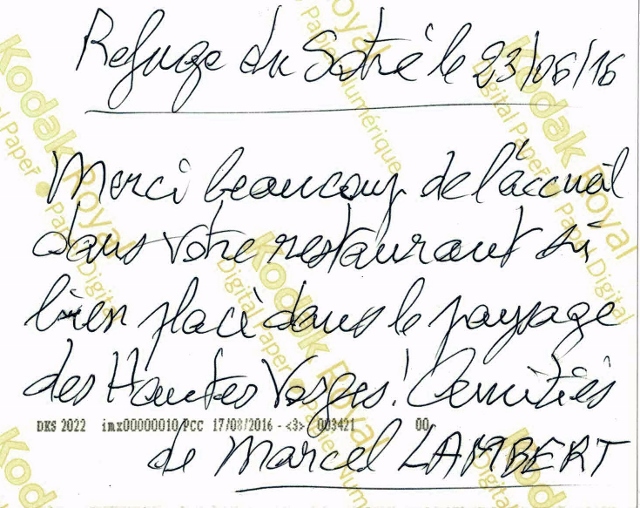 Refuge du Sotré le 23/06/16
Merci beaucoup de l'accueil
dans votre restaurant si
bien placé dans le paysage
des Hautes Vosges! Amitiés
DKS 2022 imx00000010/PCC 17/08/2016 -<3> 003421 00
de Marcel LAMBERT
Kodak Royal
Digital Paper Papier Numérique
Papier Digital